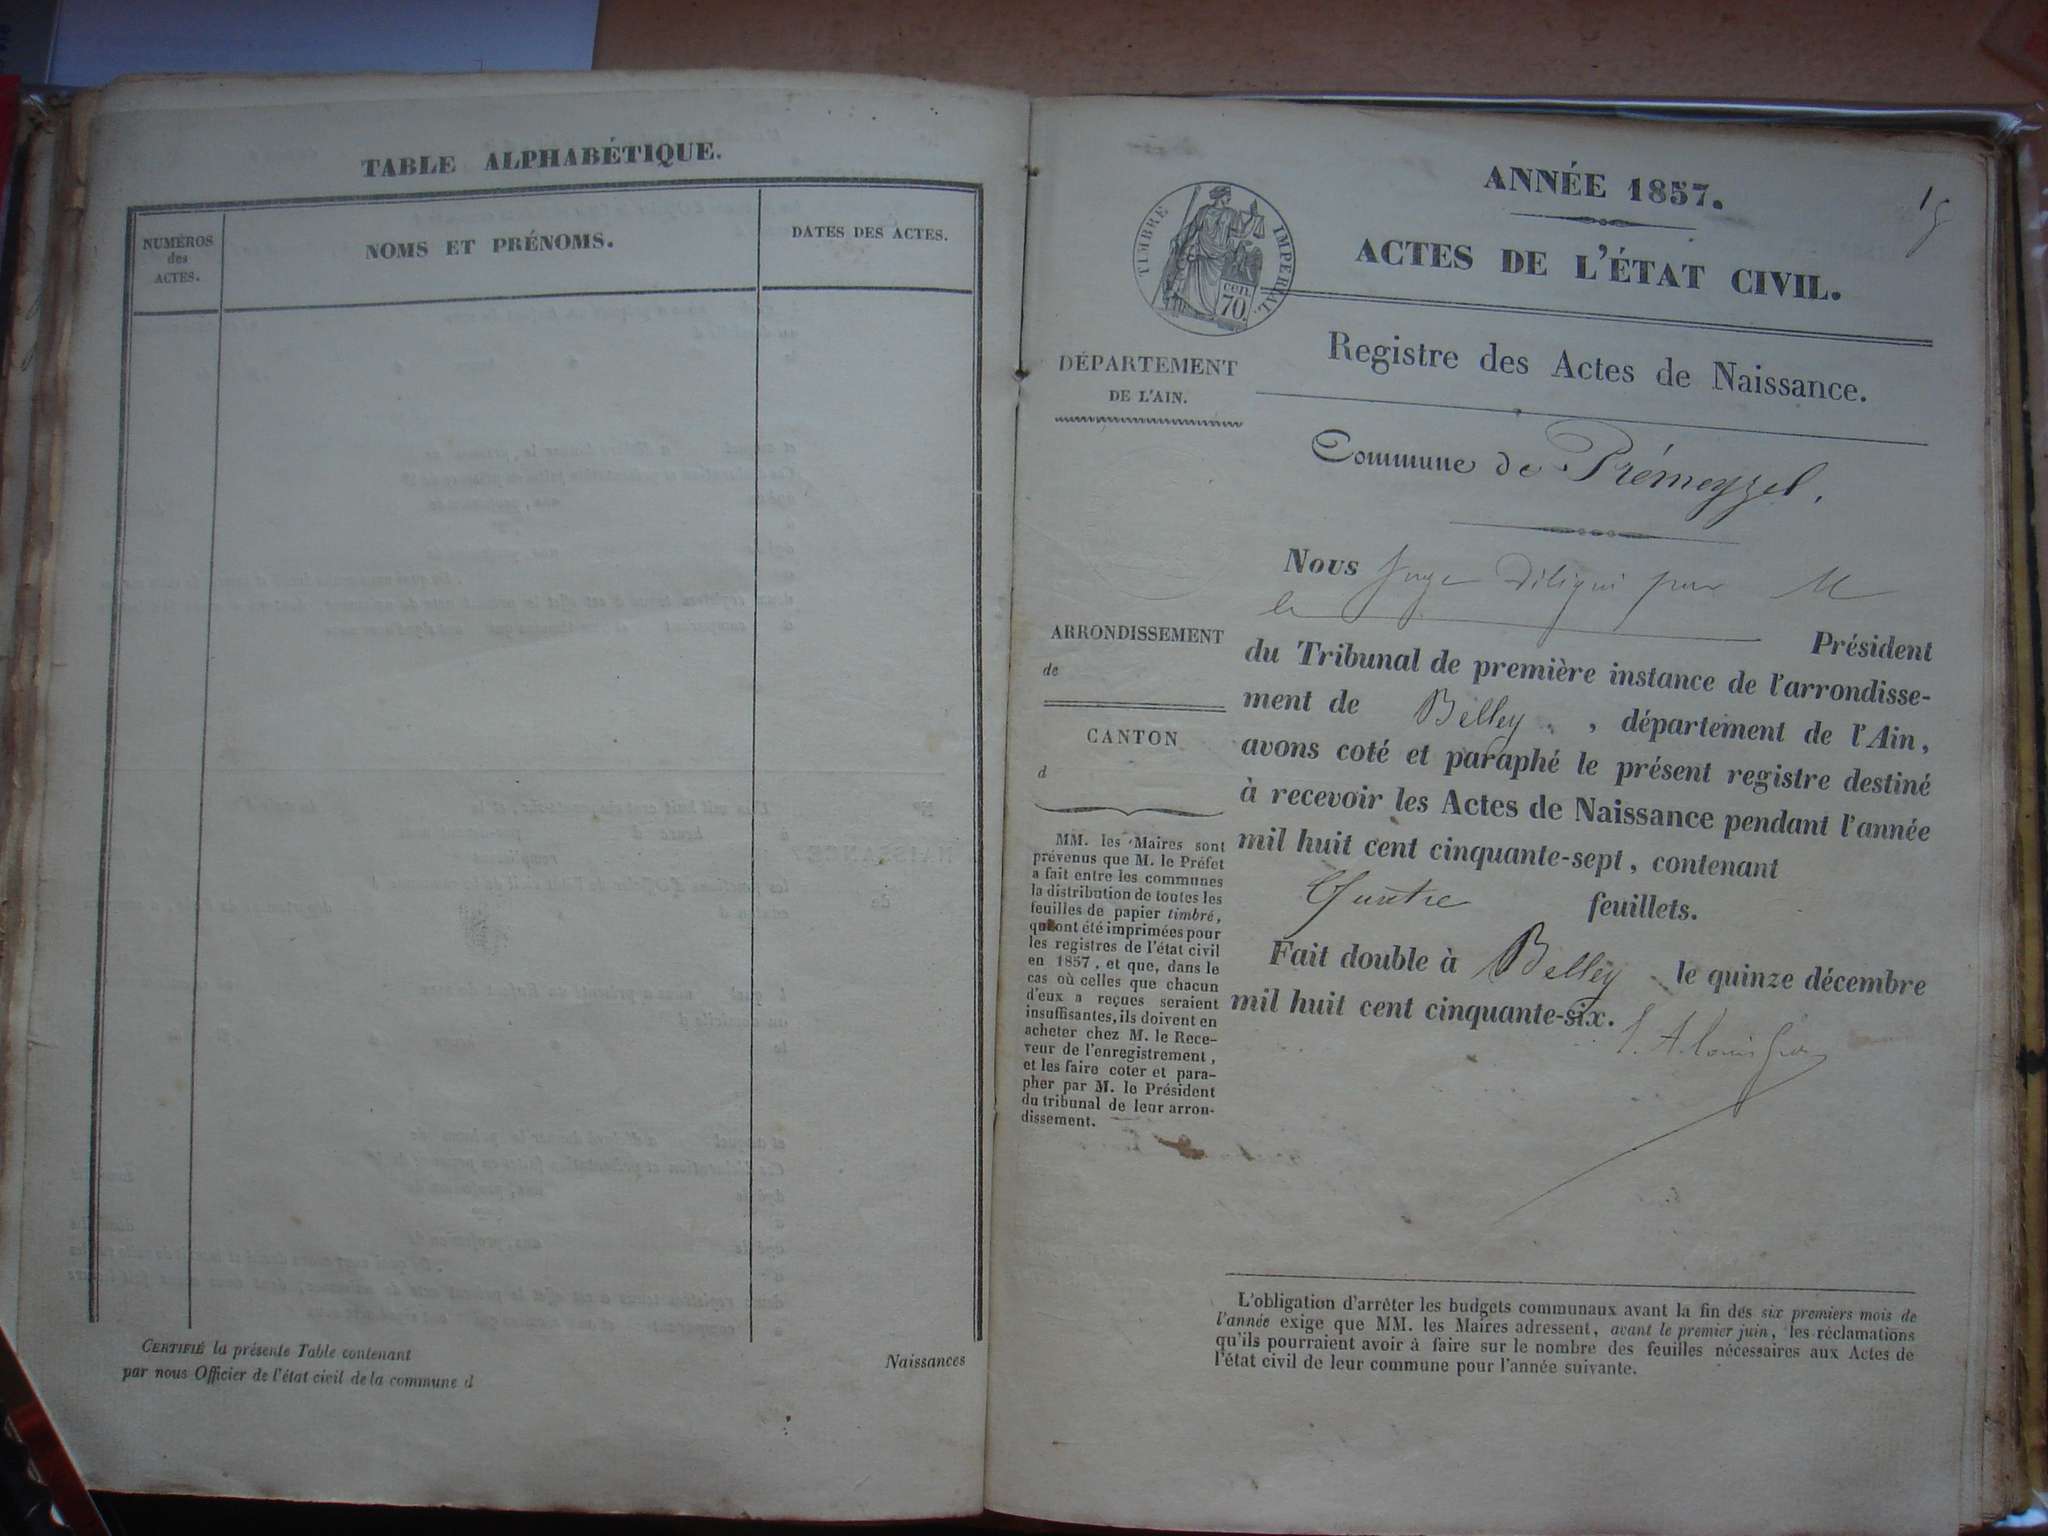 TABLE ALPHABÉTIQUE.
NUMÉROS
des
ACTES.
NOMS ET PRÉNOMS.
DATES DES ACTES.
CERTIFIÉ la présente Table contenant
Naissances
par nous Officier de l'état civil de la commune d
ANNÉE 1857.
ACTES DE L'ÉTAT CIVIL.
TIMBRE IMPÉRIAL.
CEN.
70.
Registre des Actes de Naissance.
DÉPARTEMENT
DE L'AIN.
Commune de Prémeyzel.
Nous Juge par M
le Président
du Tribunal de première instance de l'arrondisse-
ment de Belley, département de l'Ain,
avons coté et paraphé le présent registre destiné
à recevoir les Actes de Naissance pendant l'année
mil huit cent cinquante-sept, contenant
Quatre feuillets.
Fait double à Belley le quinze décembre
mil huit cent cinquante-six.
ARRONDISSEMENT
de
CANTON
d
MM. les Maires sont
prévenus que M. le Préfet
a fait entre les communes
la distribution de toutes les
feuilles de papier timbré,
qui ont été imprimées pour
les registres de l'état civil
en 1857, et que, dans le
cas où celles que chacun
d'eux a reçues seraient
insuffisantes, ils doivent en
acheter chez M. le Rece-
veur de l'enregistrement,
et les faire coter et para-
pher par M. le Président
du tribunal de leur arron-
dissement.
L'obligation d'arrêter les budgets communaux avant la fin des six premiers mois de
l'année exige que MM. les Maires adressent, avant le premier juin, les réclamations
qu'ils pourraient avoir à faire sur le nombre des feuilles nécessaires aux Actes de
l'état civil de leur commune pour l'année suivante.